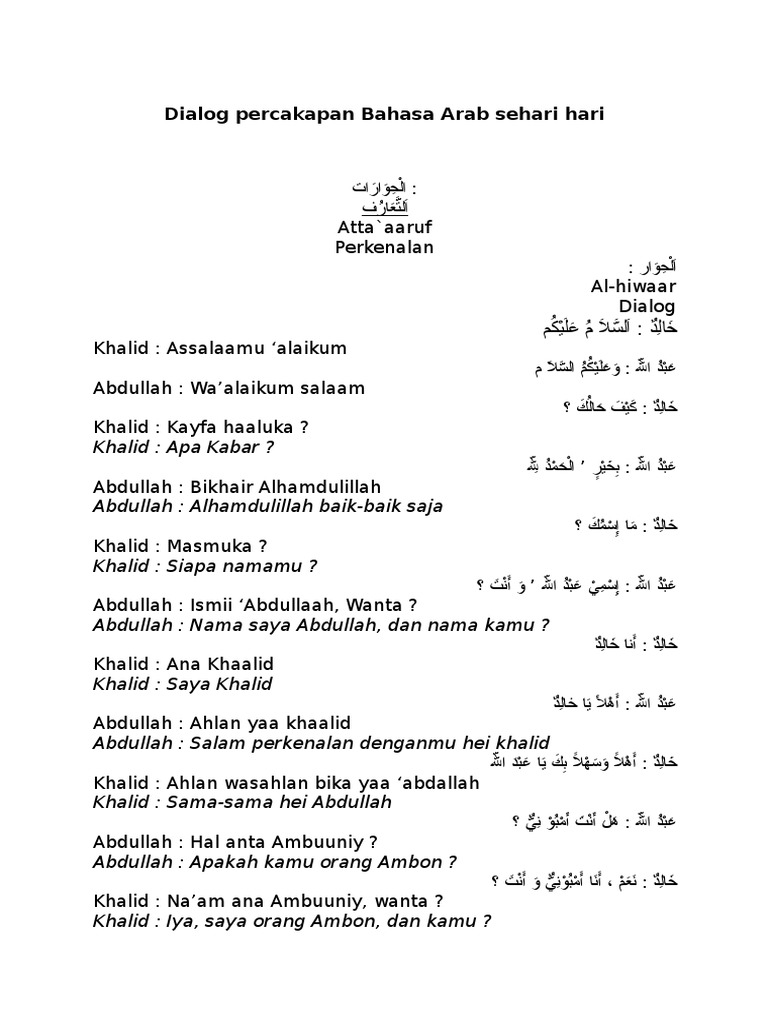 Dialog percakapan Bahasa Arab sehari hari
الْحِوَارَات :
اَلتَّعَارُف
Atta`aaruf
Perkenalan
اَلْحِوَار :
Al-hiwaar
Dialog
خَالِدٌ : اَلسَّلاَ مُ عَلَيْكُم
Khalid : Assalaamu ‘alaikum
عَبْدُ اللهِ : وَعَلَيْكُمُ السَّلاَ م
Abdullah : Wa’alaikum salaam
خَالِدٌ : كَيْفَ حَالُكَ ؟
Khalid : Kayfa haaluka ?
Khalid : Apa Kabar ?
عَبْدُ اللهِ : بِخَيْرٍ ’ الْحَمْدُ لِلهِ
Abdullah : Bikhair Alhamdulillah
Abdullah : Alhamdulillah baik-baik saja
خَالِدٌ : مَا إِسْمُكَ ؟
Khalid : Masmuka ?
Khalid : Siapa namamu ?
عَبْدُ اللهِ : إِسْمِيْ عَبْدُ اللهِ ’ وَ أَنْتَ ؟
Abdullah : Ismii ‘Abdullaah, Wanta ?
Abdullah : Nama saya Abdullah, dan nama kamu ?
خَالِدٌ : أَنا خَالِدٌ
Khalid : Ana Khaalid
Khalid : Saya Khalid
عَبْدُ اللهِ : أَهْلاً يَا خالِدٌ
Abdullah : Ahlan yaa khaalid
Abdullah : Salam perkenalan denganmu hei khalid
خَالِدٌ : أَهْلاً وَسَهْلاً بِكَ يَا عَبْدَ اللهِ
Khalid : Ahlan wasahlan bika yaa ‘abdallah
Khalid : Sama-sama hei Abdullah
عَبْدُ اللهِ : هَلْ أَنْتَ أَمْبُوْ نِيٌّ ؟
Abdullah : Hal anta Ambuuniy ?
Abdullah : Apakah kamu orang Ambon ?
خَالِدٌ : نَعَمْ ، أَنَا أَمْبُوْنِيٌّ وَ أَنْتَ ؟
Khalid : Na’am ana Ambuuniy, wanta ?
Khalid : Iya, saya orang Ambon, dan kamu ?